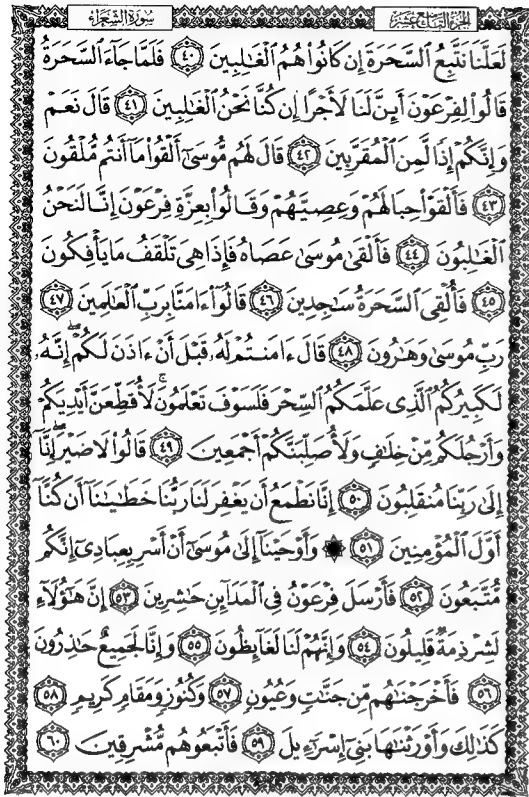 الجزء التاسع عشر
سورة الشعراء
لَعَلَّنَا نَتَّبِعُ ٱلسَّحَرَةَ إِن كَانُوا۟ هُمُ ٱلْغَـٰلِبِينَ ٤٠ فَلَمَّا جَآءَ ٱلسَّحَرَةُ
قَالُوا۟ لِفِرْعَوْنَ أَئِنَّ لَنَا لَأَجْرًا إِن كُنَّا نَحْنُ ٱلْغَـٰلِبِينَ ٤١ قَالَ نَعَمْ
وَإِنَّكُمْ إِذًا لَّمِنَ ٱلْمُقَرَّبِينَ ٤٢ قَالَ لَهُم مُّوسَىٰٓ أَلْقُوا۟ مَآ أَنتُم مُّلْقُونَ
٤٣ فَأَلْقَوْا۟ حِبَالَهُمْ وَعِصِيَّهُمْ وَقَالُوا۟ بِعِزَّةِ فِرْعَوْنَ إِنَّا لَنَحْنُ
ٱلْغَـٰلِبُونَ ٤٤ فَأَلْقَىٰ مُوسَىٰ عَصَاهُ فَإِذَا هِىَ تَلْقَفُ مَا يَأْفِكُونَ
٤٥ فَأُلْقِىَ ٱلسَّحَرَةُ سَـٰجِدِينَ ٤٦ قَالُوٓا۟ ءَامَنَّا بِرَبِّ ٱلْعَـٰلَمِينَ ٤٧
رَبِّ مُوسَىٰ وَهَـٰرُونَ ٤٨ قَالَ ءَامَنتُمْ لَهُۥ قَبْلَ أَنْ ءَاذَنَ لَكُمْ ۖ إِنَّهُۥ
لَكَبِيرُكُمُ ٱلَّذِى عَلَّمَكُمُ ٱلسِّحْرَ فَلَسَوْفَ تَعْلَمُونَ ۚ لَأُقَطِّعَنَّ أَيْدِيَكُمْ
وَأَرْجُلَكُم مِّنْ خِلَـٰفٍ وَلَأُصَلِّبَنَّكُمْ أَجْمَعِينَ ٤٩ قَالُوا۟ لَا ضَيْرَ ۖ إِنَّآ
إِلَىٰ رَبِّنَا مُنقَلِبُونَ ٥٠ إِنَّا نَطْمَعُ أَن يَغْفِرَ لَنَا رَبُّنَا خَطَـٰيَـٰنَآ أَن كُنَّآ
أَوَّلَ ٱلْمُؤْمِنِينَ ٥١ ۞ وَأَوْحَيْنَآ إِلَىٰ مُوسَىٰٓ أَنْ أَسْرِ بِعِبَادِىٓ إِنَّكُم
مُّتَّبَعُونَ ٥٢ فَأَرْسَلَ فِرْعَوْنُ فِى ٱلْمَدَآئِنِ حَـٰشِرِينَ ٥٣ إِنَّ هَـٰٓؤُلَآءِ
لَشِرْذِمَةٌ قَلِيلُونَ ٥٤ وَإِنَّهُمْ لَنَا لَغَآئِظُونَ ٥٥ وَإِنَّا لَجَمِيعٌ حَـٰذِرُونَ
٥٦ فَأَخْرَجْنَـٰهُم مِّن جَنَّـٰتٍ وَعُيُونٍ ٥٧ وَكُنُوزٍ وَمَقَامٍ كَرِيمٍ ٥٨
كَذَٰلِكَ وَأَوْرَثْنَـٰهَا بَنِىٓ إِسْرَٰٓءِيلَ ٥٩ فَأَتْبَعُوهُم مُّشْرِقِينَ ٦٠